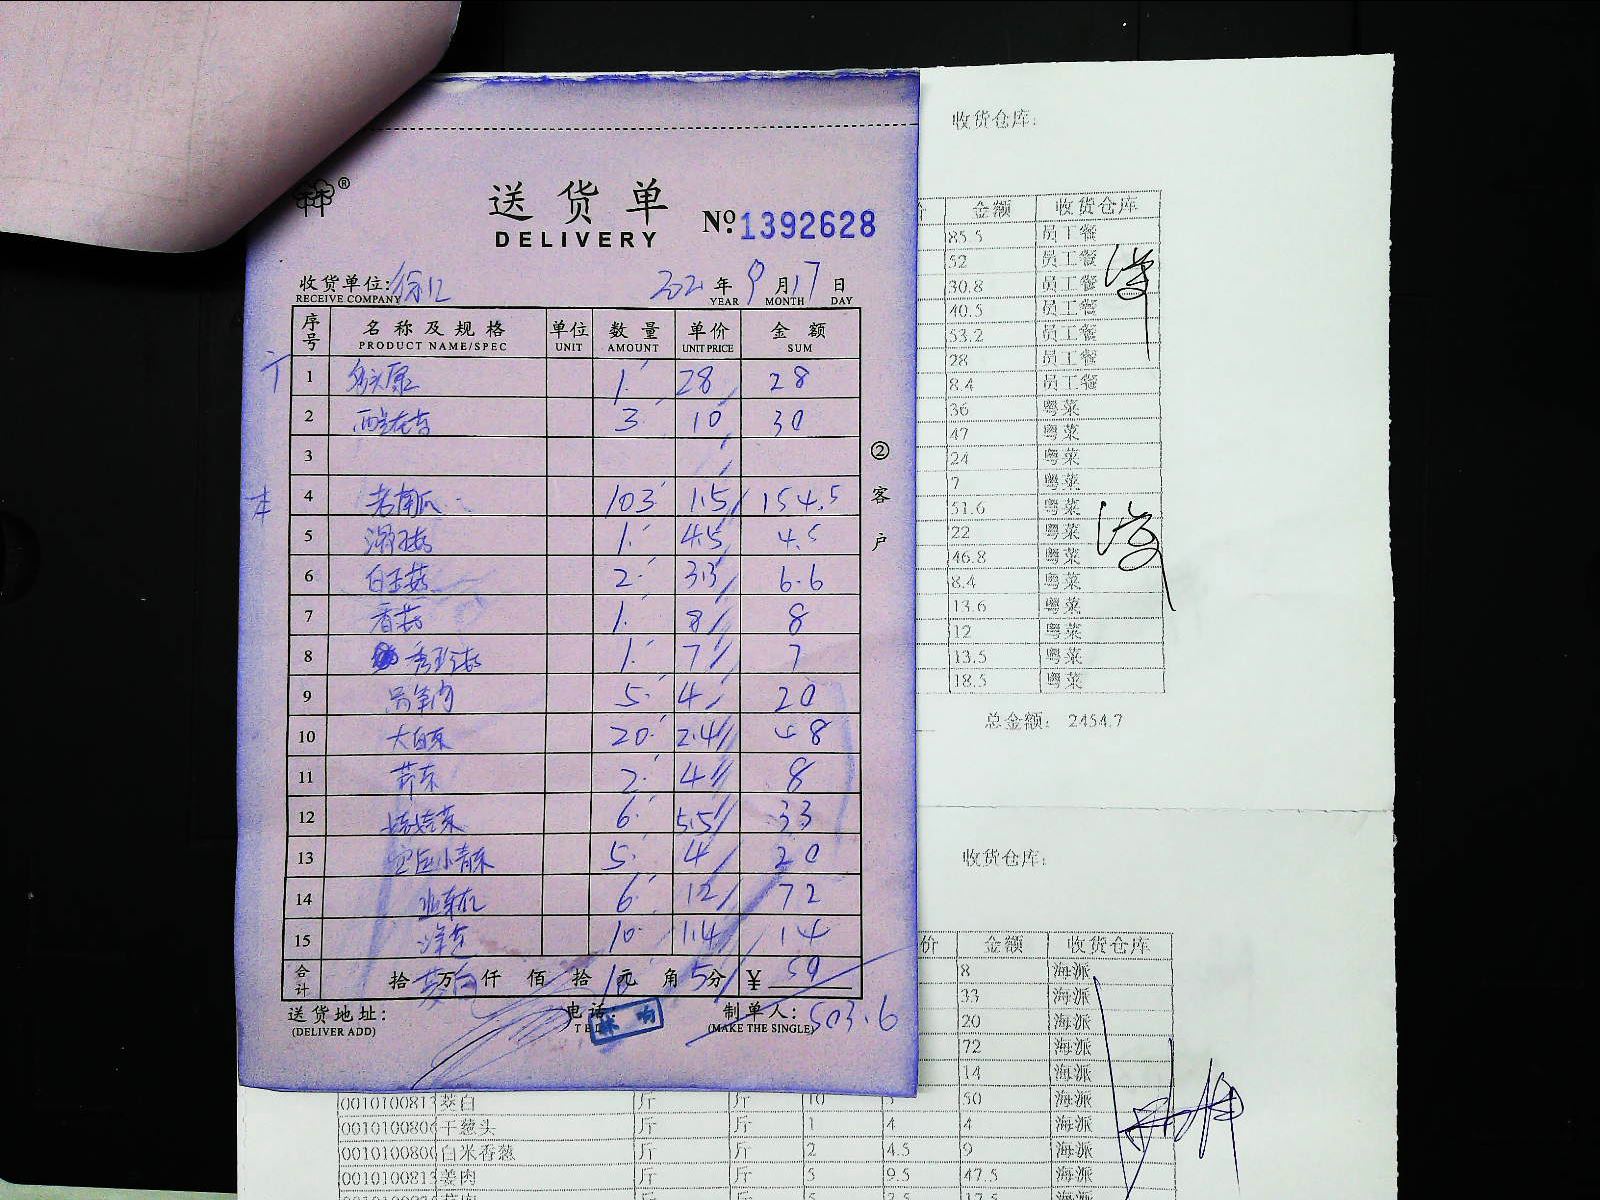 送货单
DELIVERY
№:1392628
收货单位:
RECEIVE COMPANY
2021年9月17日
YEAR MONTH DAY
序号 名称及规格 单位 数量 单价 金额
PRODUCT NAME/SPEC UNIT AMOUNT UNIT PRICE SUM
1 28 28
2 3 10 30
3
本
4 老南瓜 103 1.5 154.5
5 1 4.5 4.5
6 白玉菇 2 3.3 6.6
7 香菇 1 8 8
8 秀珍菇 1 7 7
9 5 4 20
10 大白菜 20 2.4 48
11 芹菜 2 4 8
12 娃娃菜 6 5.5 33
13 小青菜 5 4 20
14 6 12 72
15 洋芋 10 1.4 14
合计 拾万仟佰拾元角分 ¥ 50
茭白 10 5
② 客户
送货地址:
(DELIVER ADD)
电话:
TEL
制单人: 503.6
(MAKE THE SINGLE)
收货仓库:
金额 收货仓库
85.5 员工餐
52 员工餐
30.8 员工餐
40.5 员工餐
53.2 员工餐
28 员工餐
8.4 员工餐
36 粤菜
47 粤菜
24 粤菜
7 粤菜
51.6 粤菜
22 粤菜
46.8 粤菜
8.4 粤菜
13.6 粤菜
12 粤菜
13.5 粤菜
18.5 粤菜
总金额: 2454.7
收货仓库:
价 金额 收货仓库
8 海派
33 海派
20 海派
72 海派
14 海派
001010081 茭白 斤 斤 10 5 50 海派
001010080 干葱头 斤 斤 1 4 4 海派
001010080 白米香葱 斤 斤 2 4.5 9 海派
001010081 姜肉 斤 斤 5 9.5 47.5 海派